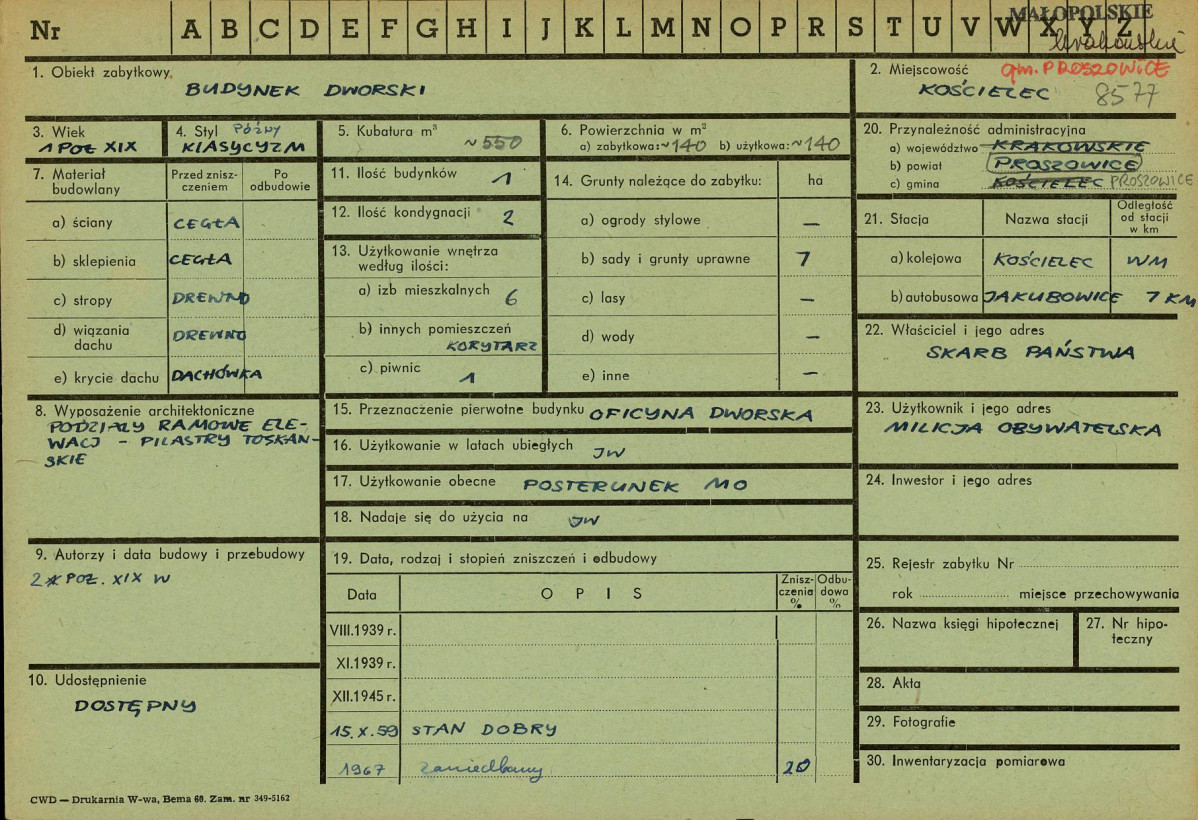 Nr A B C D E F G H I J K L M N O P R S T U V W X Y Z
MAŁOPOLSKIE
krakowskie
1. Obiekt zabytkowy
BUDYNEK DWORSKI
2. Miejscowość
gm. PROSZOWICE
KOŚCIELEC 8577
3. Wiek
1 POŁ XIX
4. Styl PÓŹNY
KLASYCYZM
5. Kubatura m³
~550
6. Powierzchnia w m²
a) zabytkowa: ~140 b) użytkowa: ~140
7. Materiał budowlany
Przed znisz-
czeniem
Po
odbudowie
a) ściany CEGŁA
b) sklepienia CEGŁA
c) stropy DREWNO
d) wiązania
dachu DREWNO
e) krycie dachu DACHÓWKA
8. Wyposażenie architektoniczne
PODZIAŁY RAMOWE ELE-
WACJ - PILASTRY TOSKAŃ-
SKIE
9. Autorzy i data budowy i przebudowy
2 POŁ. XIX W
10. Udostępnienie
DOSTĘPNY
11. Ilość budynków 1
12. Ilość kondygnacji 2
13. Użytkowanie wnętrza
według ilości:
a) izb mieszkalnych 6
b) innych pomieszczeń
KORYTARZ
c) piwnic 1
14. Grunty należące do zabytku: ha
a) ogrody stylowe —
b) sady i grunty uprawne 7
c) lasy —
d) wody —
e) inne —
15. Przeznaczenie pierwotne budynku OFICYNA DWORSKA
16. Użytkowanie w latach ubiegłych JW
17. Użytkowanie obecne POSTERUNEK MO
18. Nadaje się do użycia na JW
19. Data, rodzaj i stopień zniszczeń i odbudowy
Data OPIS Znisz-
czenia
%
Odbu-
dowa
%
VIII.1939 r.
XI.1939 r.
XII.1945 r.
15.X.59 STAN DOBRY
1967 zaniedbany 20
20. Przynależność administracyjna
a) województwo KRAKOWSKIE
b) powiat PROSZOWICE
c) gmina KOŚCIELEC PROSZOWICE
21. Stacja Nazwa stacji Odległość
od stacji
w km
a) kolejowa KOŚCIELEC WM
b) autobusowa JAKUBOWICE 7 KM
22. Właściciel i jego adres
SKARB PAŃSTWA
23. Użytkownik i jego adres
MILICJA OBYWATELSKA
24. Inwestor i jego adres
25. Rejestr zabytku Nr
rok miejsce przechowywania
26. Nazwa księgi hipotecznej
27. Nr hipo-
teczny
28. Akta
29. Fotografie
30. Inwentaryzacja pomiarowa
CWD — Drukarnia W-wa, Bema 60. Zam. nr 349-5162